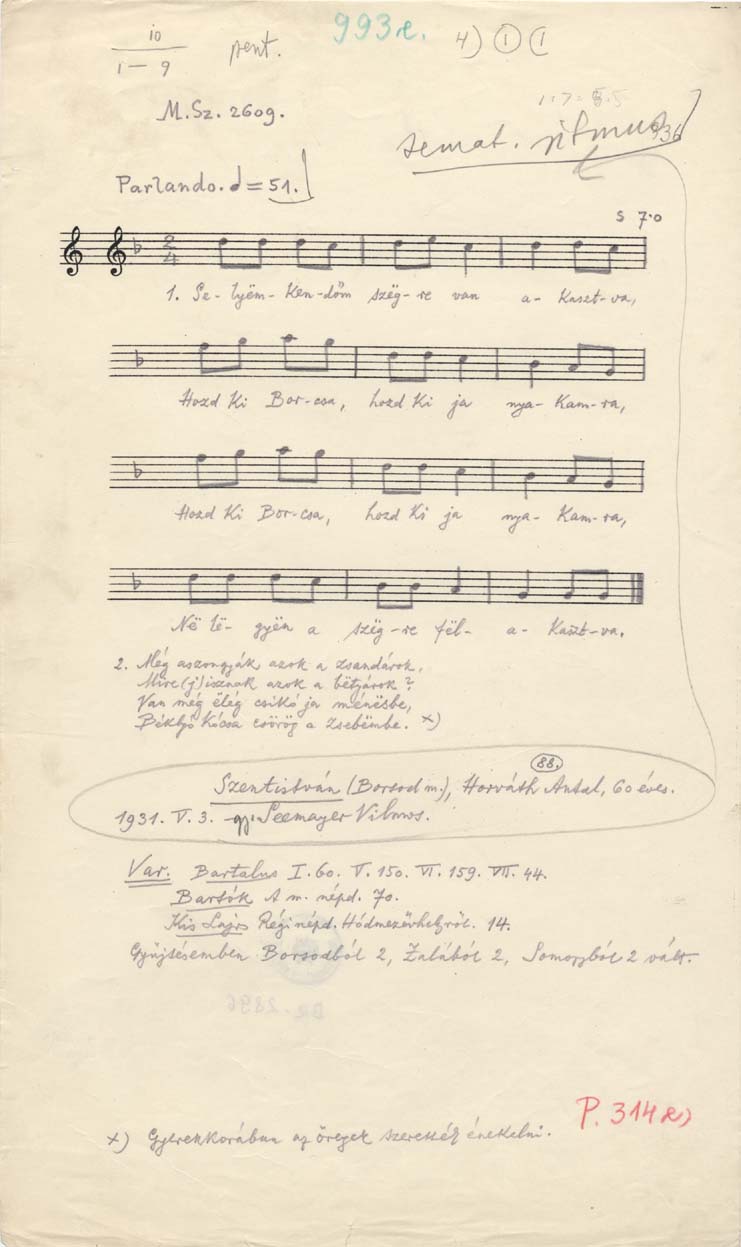 10
1 – 9 pent. 993e. 4) 1 (1
M.Sz. 2609.
temat. ritmus
Parlando. = 51.
S 7·0
2
4
1. Se- lyëm- ken- dőm szëg- re van a- kaszt- va,
Hozd ki Bor- csa, hozd ki ja nya- kam- ra,
Hozd ki Bor- csa, hozd ki ja nya- kam- ra,
Në lë- gyën a szëg- re fël- a- kaszt- va.
2. Még aszongyák azok a zsandárok,
Mire (j) isznak azok a bëtyárok?
Van még ëlég csikó ja ménësbe,
Béklyó kócsa csörög a zsebëmbe. x)
88.
Szentistván (Borsod m.), Horváth Antal, 60 éves.
1931. V. 3. gy. Seemayer Vilmos.
Var. Bartalus I. 60. V. 150. VI. 159. VII. 44.
Bartók A m. népd. 70.
Kis Lajos Régi népd. Hódmezővhelyről. 14.
Gyűjtésemben Borsodból 2, Zalából 2, Somogyból 2 vált.
P. 314e)
x) Gyerekkorában az öregek szerették énekelni.